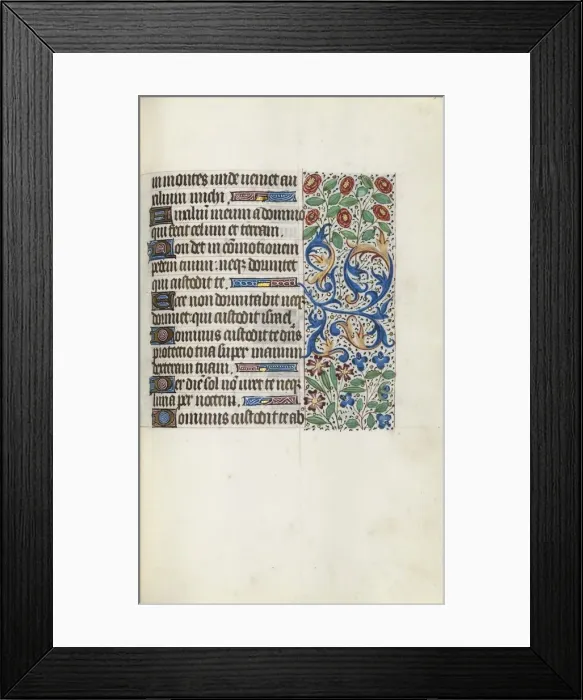 in montes unde veniet au
xilium michi,
Auxiliũ meum a domino
qui fecit celum et terram,
Non det in cõmotionem
pedem tuum: neqз dormitet
qui custodit te,
Ecce non dormitabit neqз
dormiet qui custodit israel,
Dominus custodit te dñs
protectio tua super manum
dexteram tuam,
Per diẽ sol nõ uret te neqз
luna per noctem,
Dominus custodit te ab